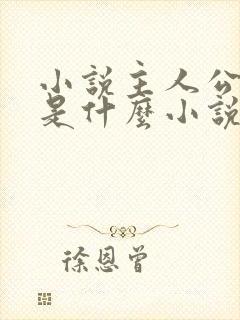 小說主人公
是什麼小說
徐恩曾